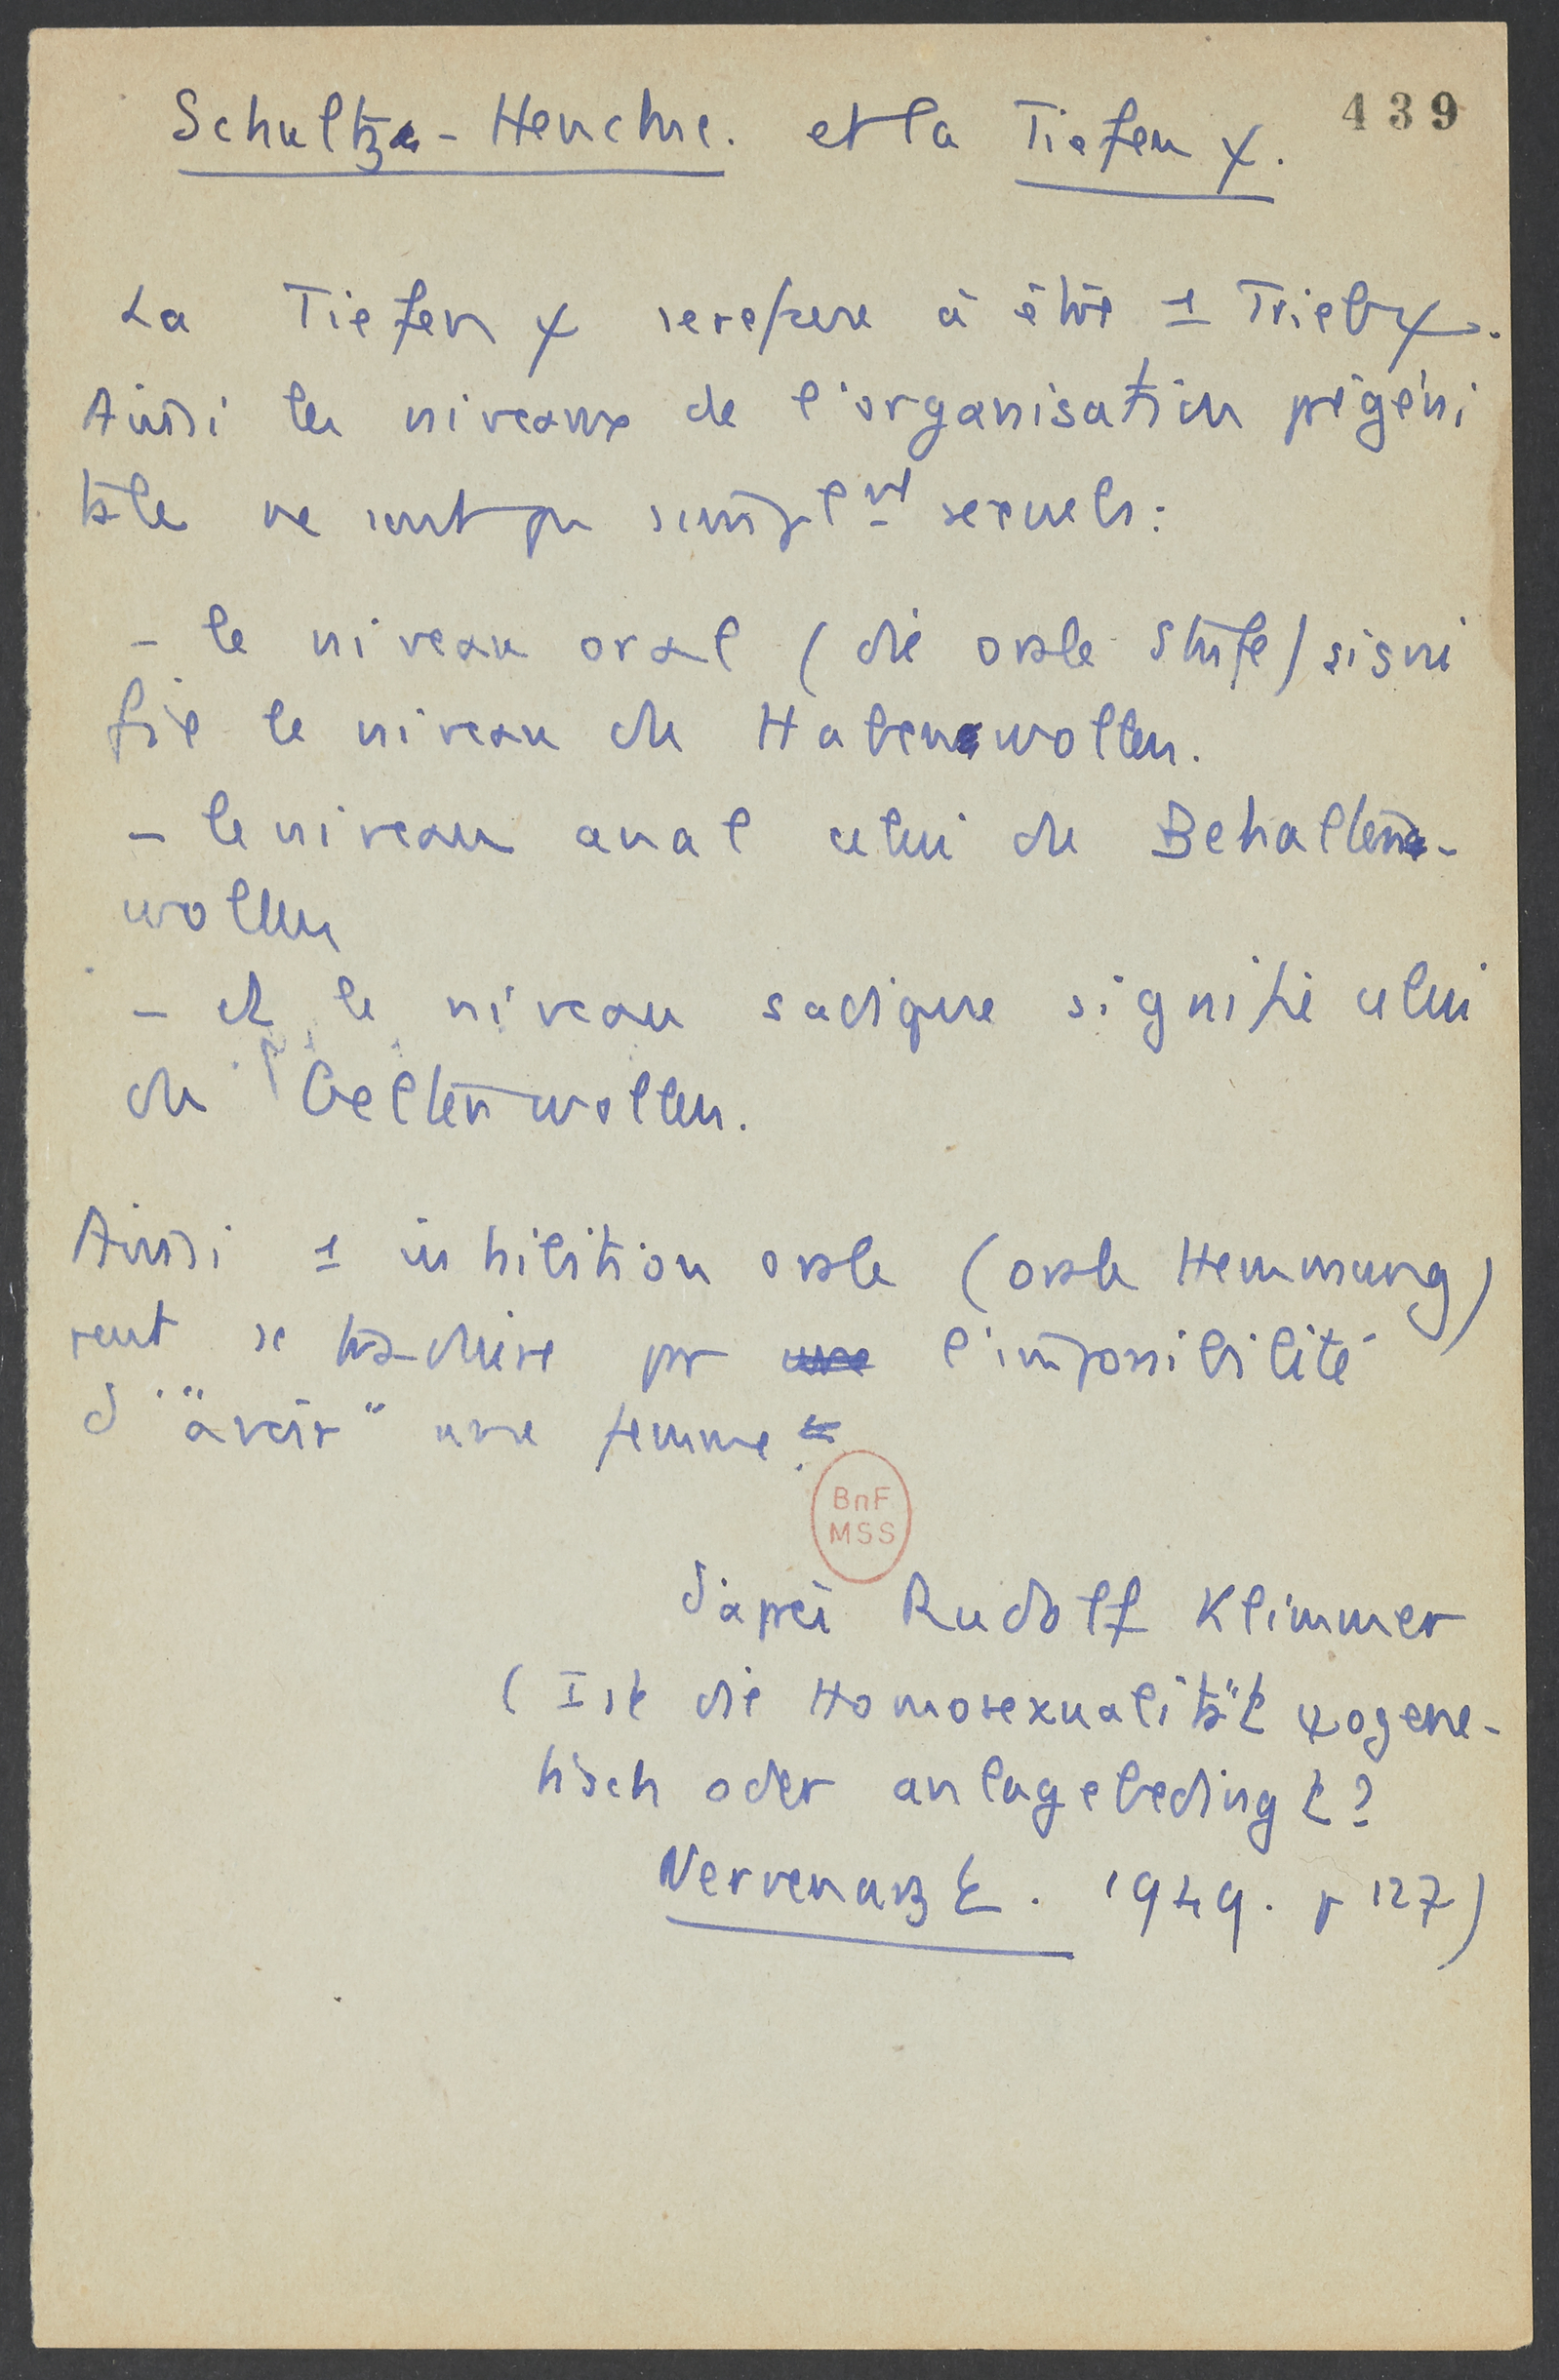 439
Schultze-Henckne. et la Tiefen ψ.
La Tiefen ψ se refuse à être 1 Triebψ.
Ainsi les niveaux de l'organisation prégéni
tale ne sont pas simplmt sexuels :
- le niveau oral (die orale Stufe) signi
fie le niveau du Habenwollen.
- le niveau anal celui du Behalten-
wollen
- et le niveau sadique signifie celui
du Geltenwollen.
Ainsi 1 inhibition orale (orale Hemmung)
peut se traduire par l'impossibilité
d'"avoir" une femme.
d'après Rudolf Klimmer
(Ist die Homosexualität ψogene-
tisch oder anlagebedingt ?
Nervenarzt. 1949. p 127)
BnF
MSS